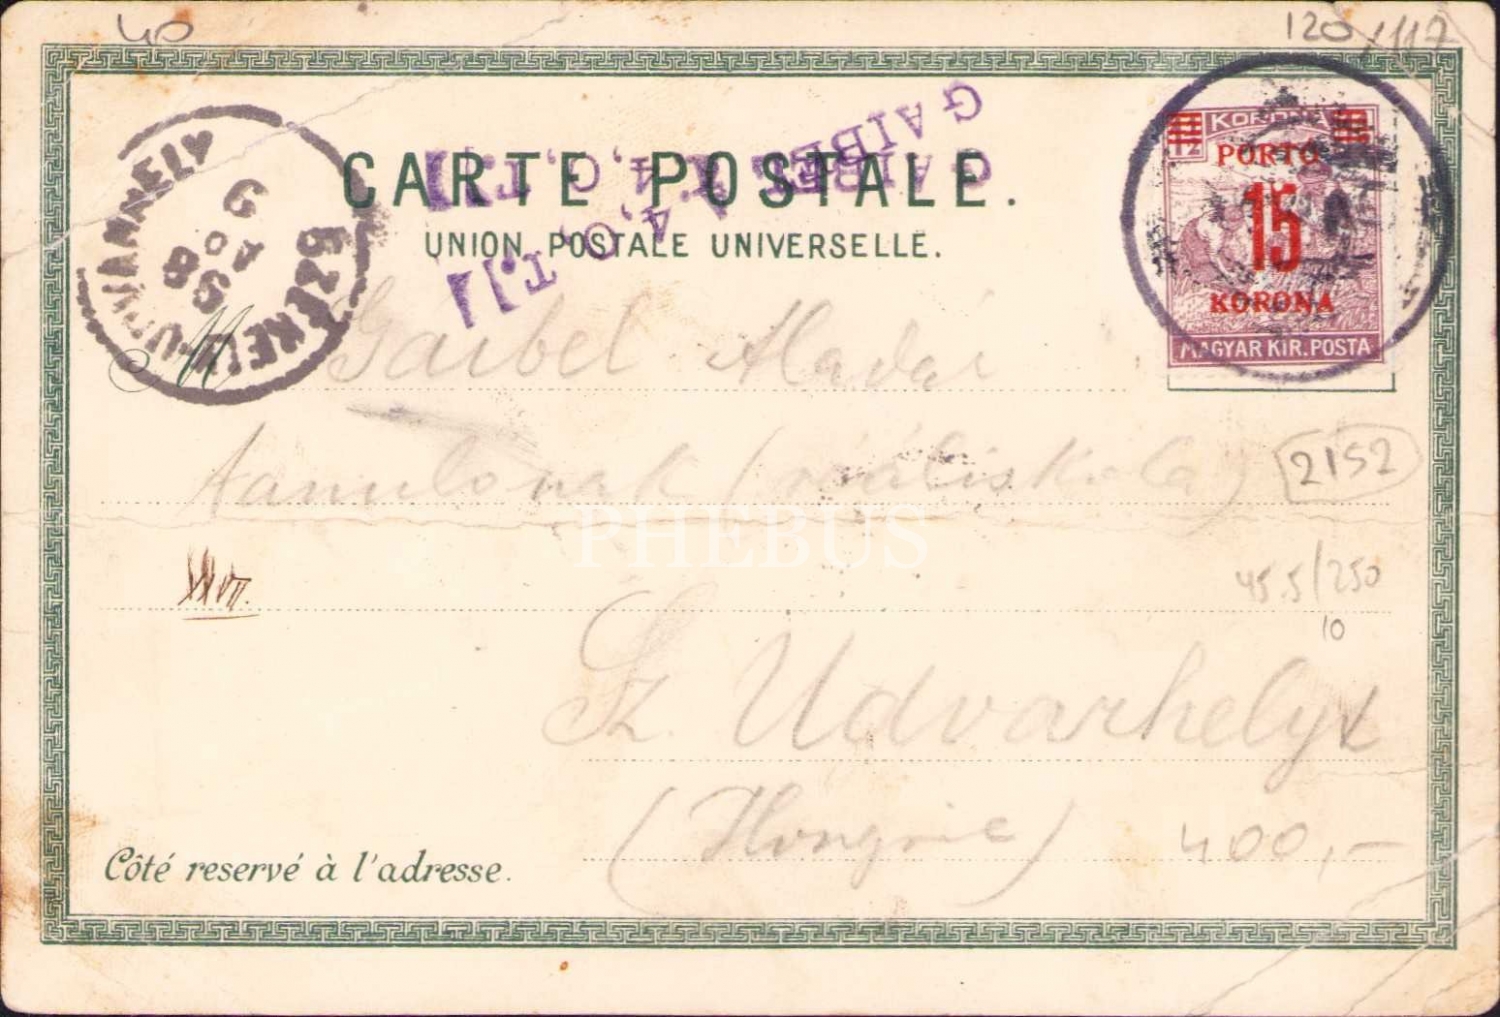 40
120/117
CARTE POSTALE.
UNION POSTALE UNIVERSELLE.
GAIBEL
GAIBEL
KORONA
PORTO
15
KORONA
MAGYAR KIR. POSTA
Gaibel Aladár
tanulónak (reáliskola)
2152
PHEBUS
45.5/250
10
Sz. Udvarhelyt
(Hongrie)
400,-
Côté reservé à l'adresse.